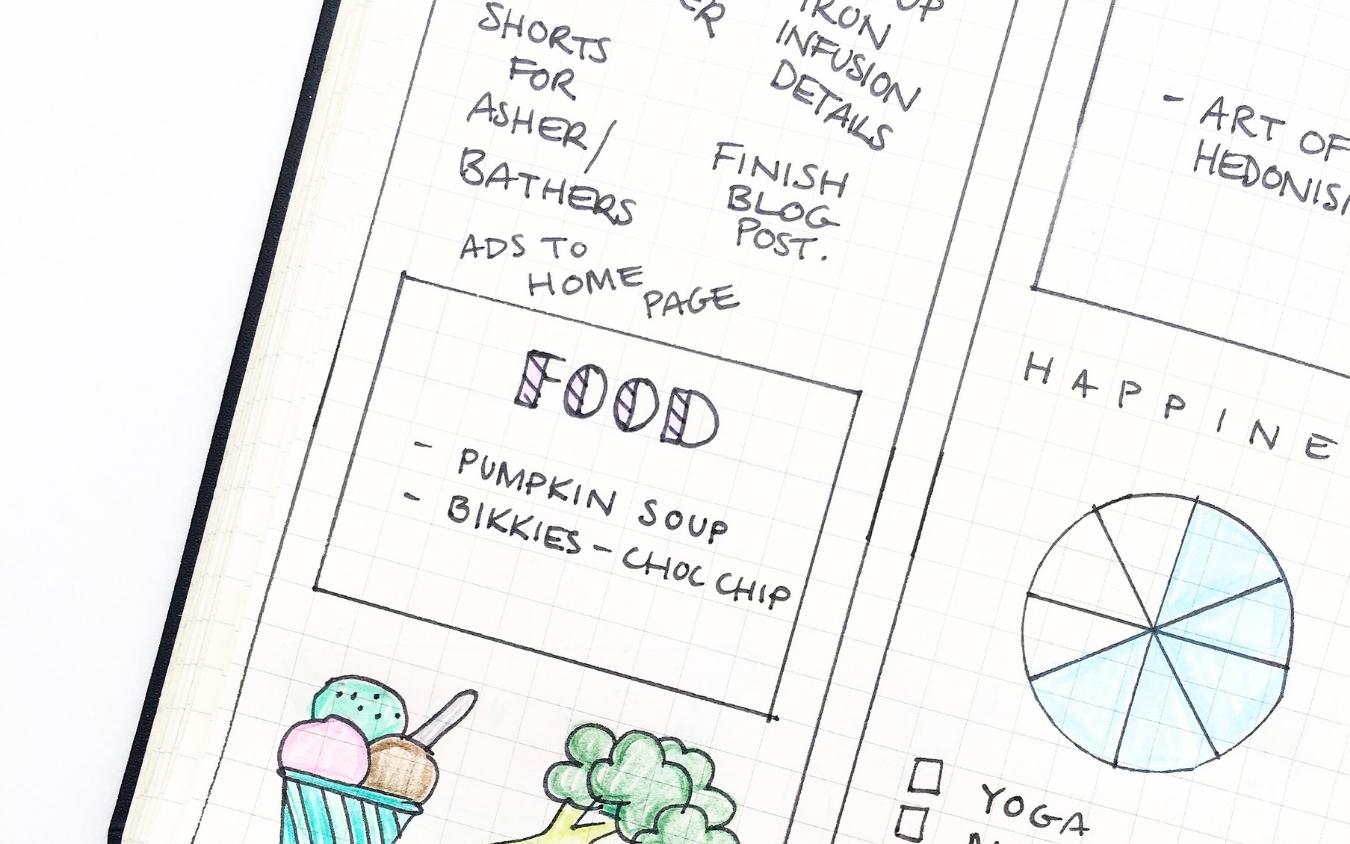 SHORTS
FOR
ASHER/
BATHERS
ADS TO
HOME
PAGE
UP
IRON
INFUSION
DETAILS
FINISH
BLOG
POST.
FOOD
- PUMPKIN SOUP
- BIKKIES - CHOC CHIP
- ART OF
HEDONIS
H A P P I N E
YOGA